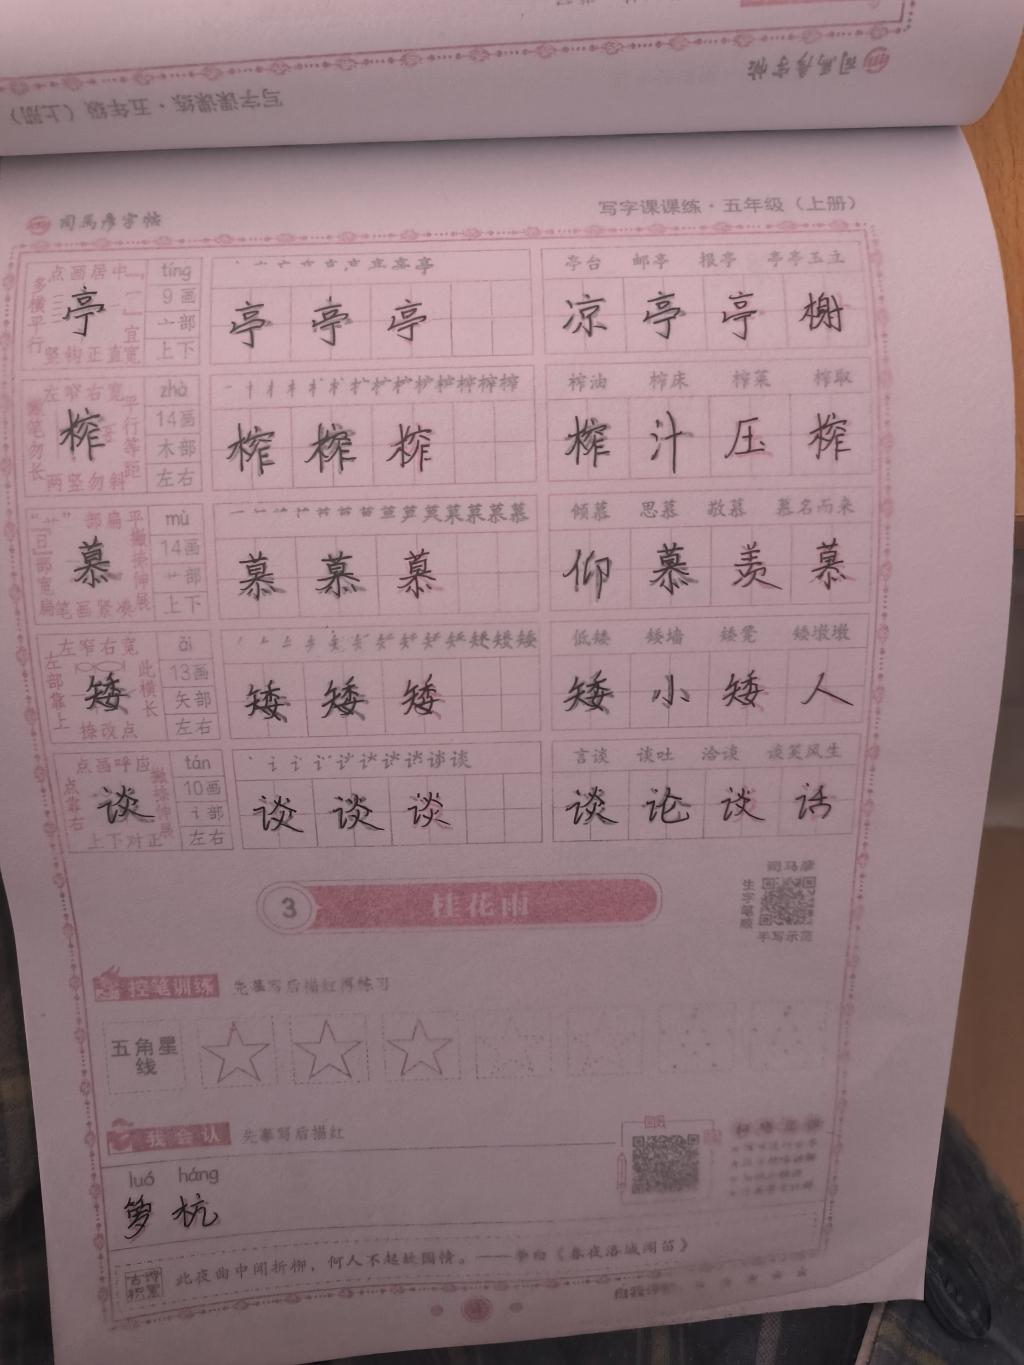 司马彦字帖
写字课课练·五年级（上册）
司马彦字帖
写字课课练·五年级（上册）
点画居中 多横平行 亭 宜宽 竖钩正直
tíng
9画
亠部
上下
亭 亭 亭
亭台 邮亭 报亭 亭亭玉立
凉 亭 亭 榭
左窄右宽 撇笔勿长 榨 平行等距 两竖勿斜
zhà
14画
木部
左右
榨 榨 榨
榨油 榨床 榨菜 榨取
榨 汁 压 榨
“艹”部扁平 “日”部宽扁 慕 撇捺伸展 笔画紧凑
mù
14画
上下
慕 慕 慕
倾慕 思慕 敬慕 慕名而来
仰 慕 羡 慕
左窄右宽 左部靠上 矮 此横长 捺改点
ǎi
13画
矢部
左右
矮 矮 矮
低矮 矮墙 矮凳 矮墩墩
矮 小 矮 人
点画呼应 点靠右 谈 撇捺伸展 上下对正
tán
10画
讠部
左右
谈 谈 谈
言谈 谈吐 洽谈 谈笑风生
谈 论 谈 话
3 桂花雨
司马彦
生字笔顺
手写示范
控笔训练 先摹写后描红再练习
五角星线
我会认 先摹写后描红
luó háng
箩 杭
古诗积累
此夜曲中闻折柳，何人不起故园情。——李白《春夜洛城闻笛》
4